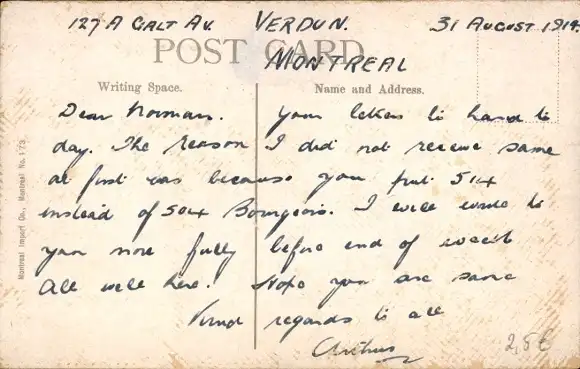 127A GALT AV. VERDUN. 31 AUGUST 1914.
POST CARD
MONTREAL
Writing Space. Name and Address.
Dear Norman. Your letters to hand to
day. The reason I did not receive same
at first was because you put 514
instead of 504 Bourgeois. I will write to
you more fully before end of week
All well here. Hope you are same
Kind regards to all
Arthur
Montreal Import Co., Montreal No. 173
2,5€